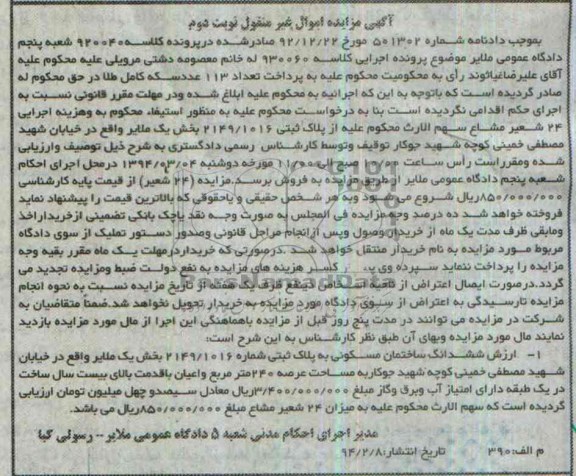 آگهی مزایده اموال غیر منقول نوبت دوم
بموجب دادنامه شماره ۵۰۱۳۰۲ مورخ ۹۲/۱۲/۲۲ صادرشده درپرونده کلاسه ۹۲۰۰۴۰ شعبه پنجم
دادگاه عمومی ملایر موضوع پرونده اجرایی کلاسه ۹۳۰۰۶۰ له خانم معصومه دشتی مرویلی علیه محکوم علیه
آقای علیرضاغیاثوند رأی به محکومیت محکوم علیه به پرداخت تعداد ۱۱۳ عددسکه کامل طلا در حق محکوم له
صادر گردیده است که باتوجه به این که اجرائیه به محکوم علیه ابلاغ شده ودر مهلت مقرر قانونی نسبت به
اجرای حکم اقدامی نگردیده است بنا به درخواست محکوم علیه به منظور استیفاء محکوم به وهزینه اجرایی
۲۴ شعیر مشاع سهم الارث محکوم علیه از پلاک ثبتی ۲۱۴۹/۱۰۱۶ بخش یک ملایر واقع در خیابان شهید
مصطفی خمینی کوچه شهید جوکار توقیف وتوسط کارشناس رسمی دادگستری به شرح ذیل توصیف وارزیابی
شده ومقرراست رأس ساعت ۱۰/۰۰ صبح الی ۱۱/۰۰ مورخه دوشنبه ۱۳۹۴/۰۳/۰۴ درمحل اجرای احکام
شعبه پنجم دادگاه عمومی ملایر از طریق مزایده به فروش برسد.مزایده (۲۴ شعیر) از قیمت پایه کارشناسی
۸۵۰/۰۰۰/۰۰۰ریال شروع می شود وبه هر شخص حقیقی و یاحقوقی که بالاترین قیمت را پیشنهاد نماید
فروخته خواهد شد ده درصد وجه مزایده فی المجلس به صورت وجه نقد یاچک بانکی تضمینی ازخریداراخذ
ومابقی ظرف مدت یک ماه از خریداروصول وپس ازانجام مراحل قانونی وصدور دستور تملیک از سوی دادگاه
مربوط مورد مزایده به نام خریدار منتقل خواهد شد .درصورتی که خریداردرمهلت یک ماه مقرر بقیه وجه
مزایده را پرداخت ننماید سپرده وی پس از کسر هزینه های مزایده به نفع دولت ضبط ومزایده تجدید می
گردد.درصورت ایصال اعتراض از ناحیه اشخاص ذینفع ظرف یک هفته از تاریخ مزایده نسبت به نحوه انجام
مزایده تارسیدگی به اعتراض از سوی دادگاه مورد مزایده به خریدار تحویل نخواهد شد.ضمناً متقاضیان به
شرکت در مزایده می توانند در مدت پنج روز قبل از مزایده باهماهنگی این اجرا از مال مورد مزایده بازدید
نمایند مال مورد مزایده وبهای آن طبق نظر کارشناس به این شرح است:
۱- ارزش ششدانگ ساختمان مسکونی به پلاک ثبتی شماره ۲۱۴۹/۱۰۱۶ بخش یک ملایر واقع در خیابان
شهید مصطفی خمینی کوچه شهید جوکاربه مساحت عرصه ۲۴۰متر مربع واعیان باقدمت بالای بیست سال ساخت
در یک طبقه دارای امتیاز آب وبرق وگاز مبلغ ۳/۴۰۰/۰۰۰/۰۰۰ریال معادل سیصدو چهل میلیون تومان ارزیابی
گردیده است که سهم الارث محکوم علیه به میزان ۲۴ شعیر مشاع مبلغ ۸۵۰/۰۰۰/۰۰۰ریال می باشد.
مدیر اجرای احکام مدنی شعبه ۵ دادگاه عمومی ملایر-- رسولی کیا
م الف:۳۹۰ تاریخ انتشار:۹۴/۲/۸